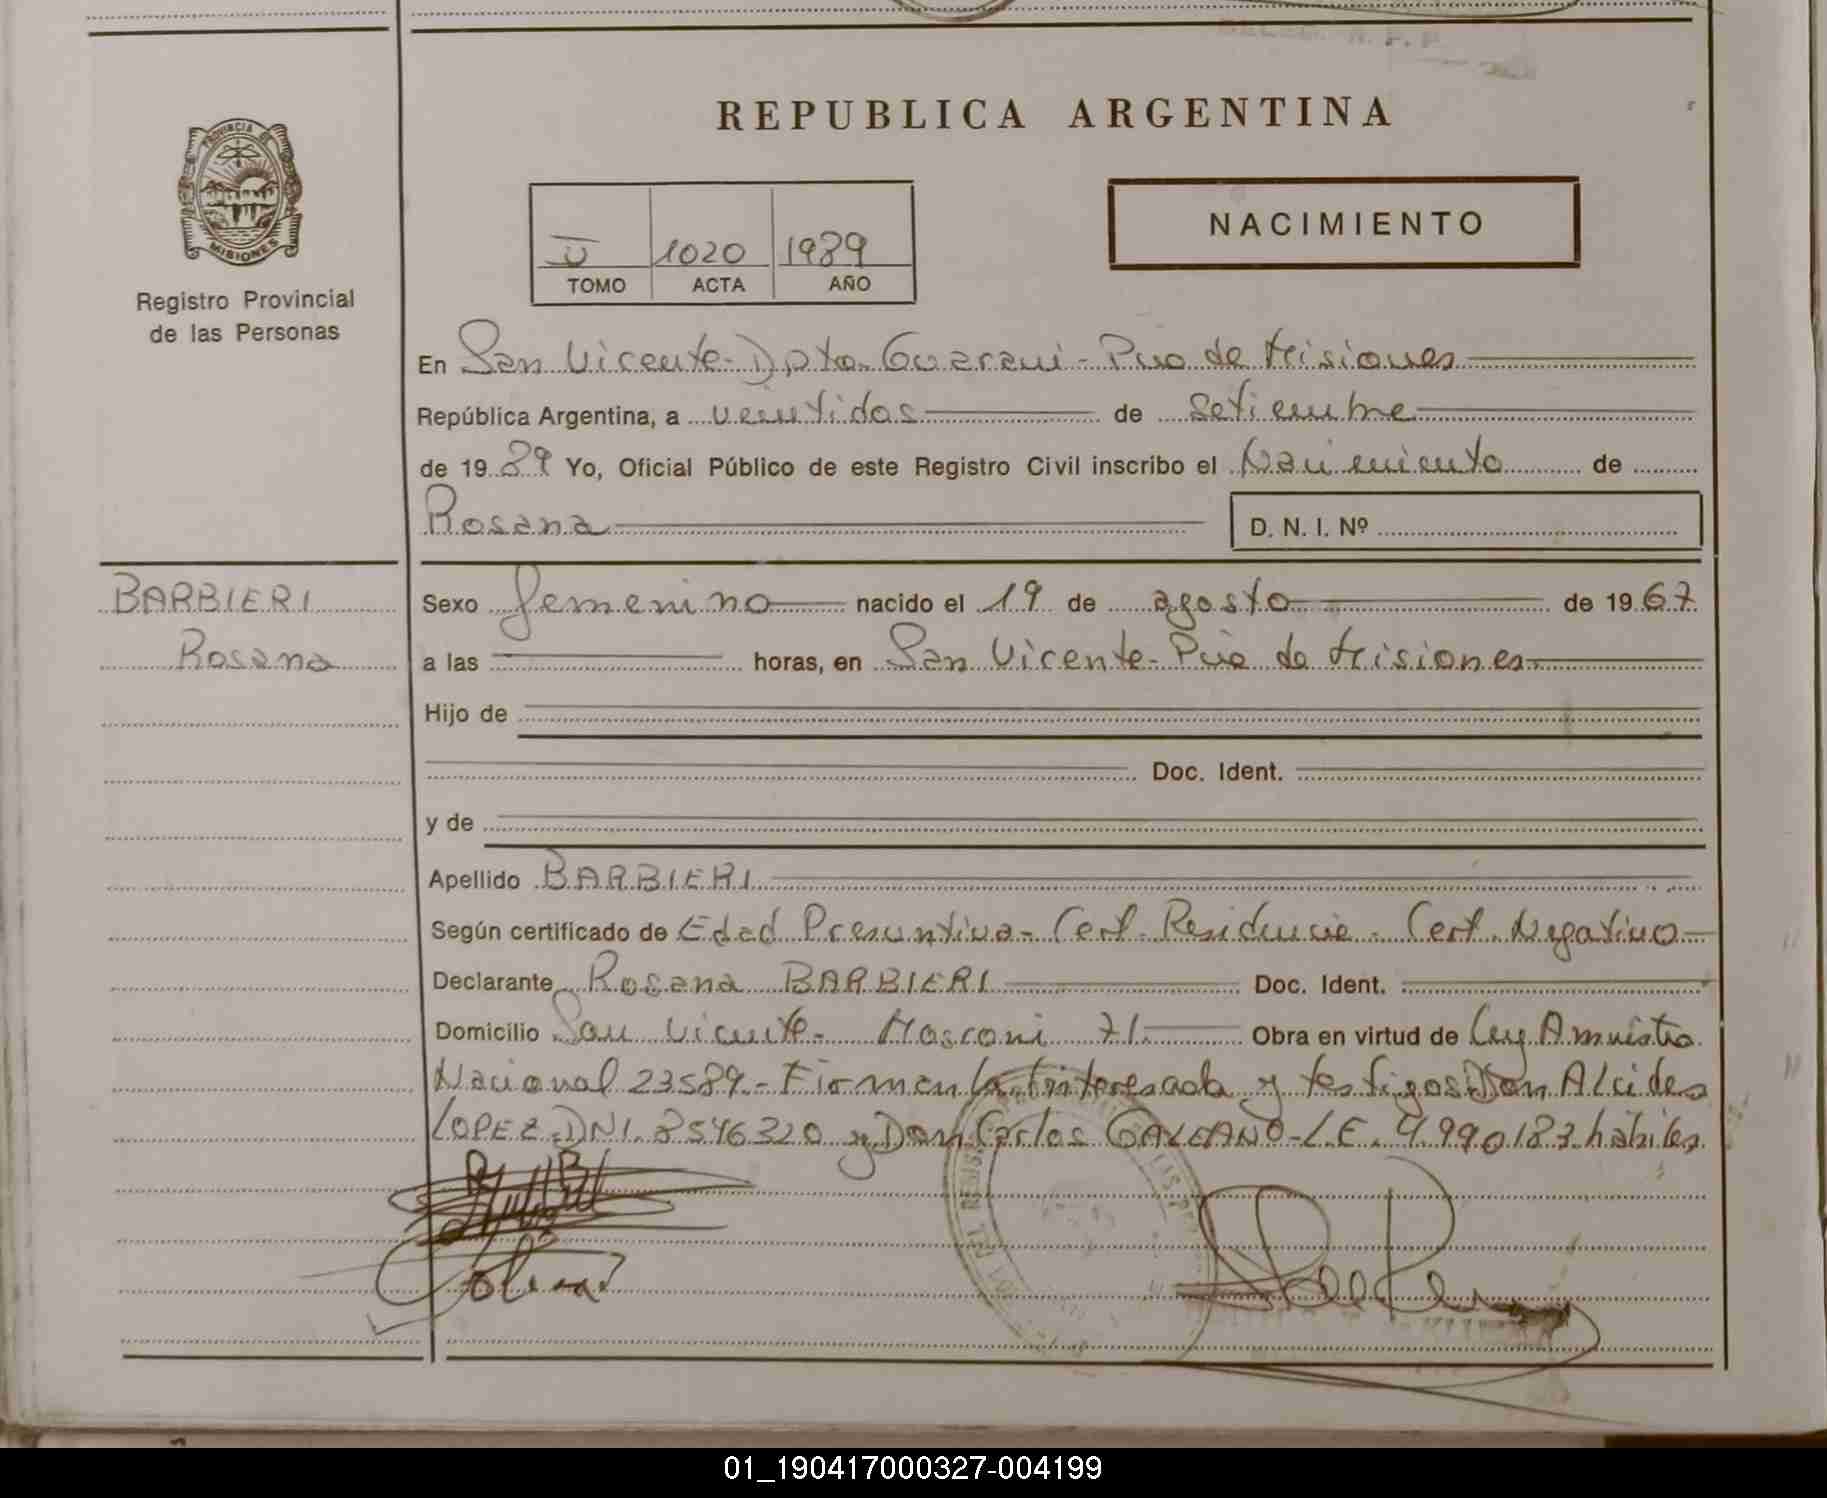 REPUBLICA ARGENTINA
PROVINCIA DE
MISIONES
Registro Provincial
de las Personas
NACIMIENTO
II 1020 1989
TOMO ACTA AÑO
En San Vicente - Dpto. Guarani - Pcia de Misiones
República Argentina, a veintidos de Setiembre
de 1989 Yo, Oficial Público de este Registro Civil inscribo el Nacimiento de
Rosana D. N. I. Nº
BARBIERI
Rosana
Sexo femenino nacido el 19 de agosto de 1967
a las horas, en San Vicente - Pcia de Misiones
Hijo de
Doc. Ident.
y de
Apellido BARBIERI
Según certificado de Edad Presuntiva - Cert. Residencia - Cert. Negativo
Declarante Rosana BARBIERI Doc. Ident.
Domicilio San Vicente - Mosconi 71 Obra en virtud de Ley Amnistia
Nacional 23589 - Firman la interesada y testigos Don Alcides
LOPEZ DNI. 8546320 y Don Carlos GALEANO - L.E. 4.990.183 hábiles.
01_190417000327-004199